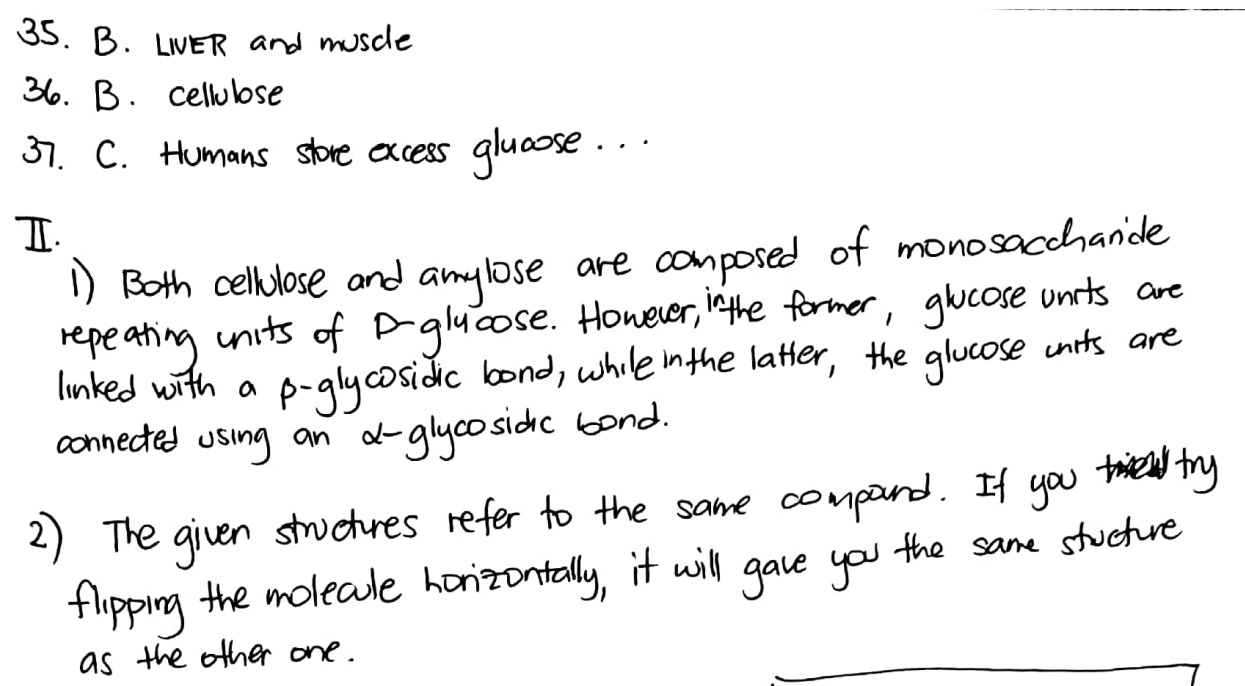 35. B. LIVER and muscle
36. B. cellulose
37. C. Humans store excess glucose . . .
II.
1) Both cellulose and amylose are composed of monosaccharide
repeating units of D-glucose. However, in the former, glucose units are
linked with a β-glycosidic bond, while in the latter, the glucose units are
connected using an α-glycosidic bond.
2) The given structures refer to the same compound. If you try
flipping the molecule horizontally, it will gave you the same stucture
as the other one.